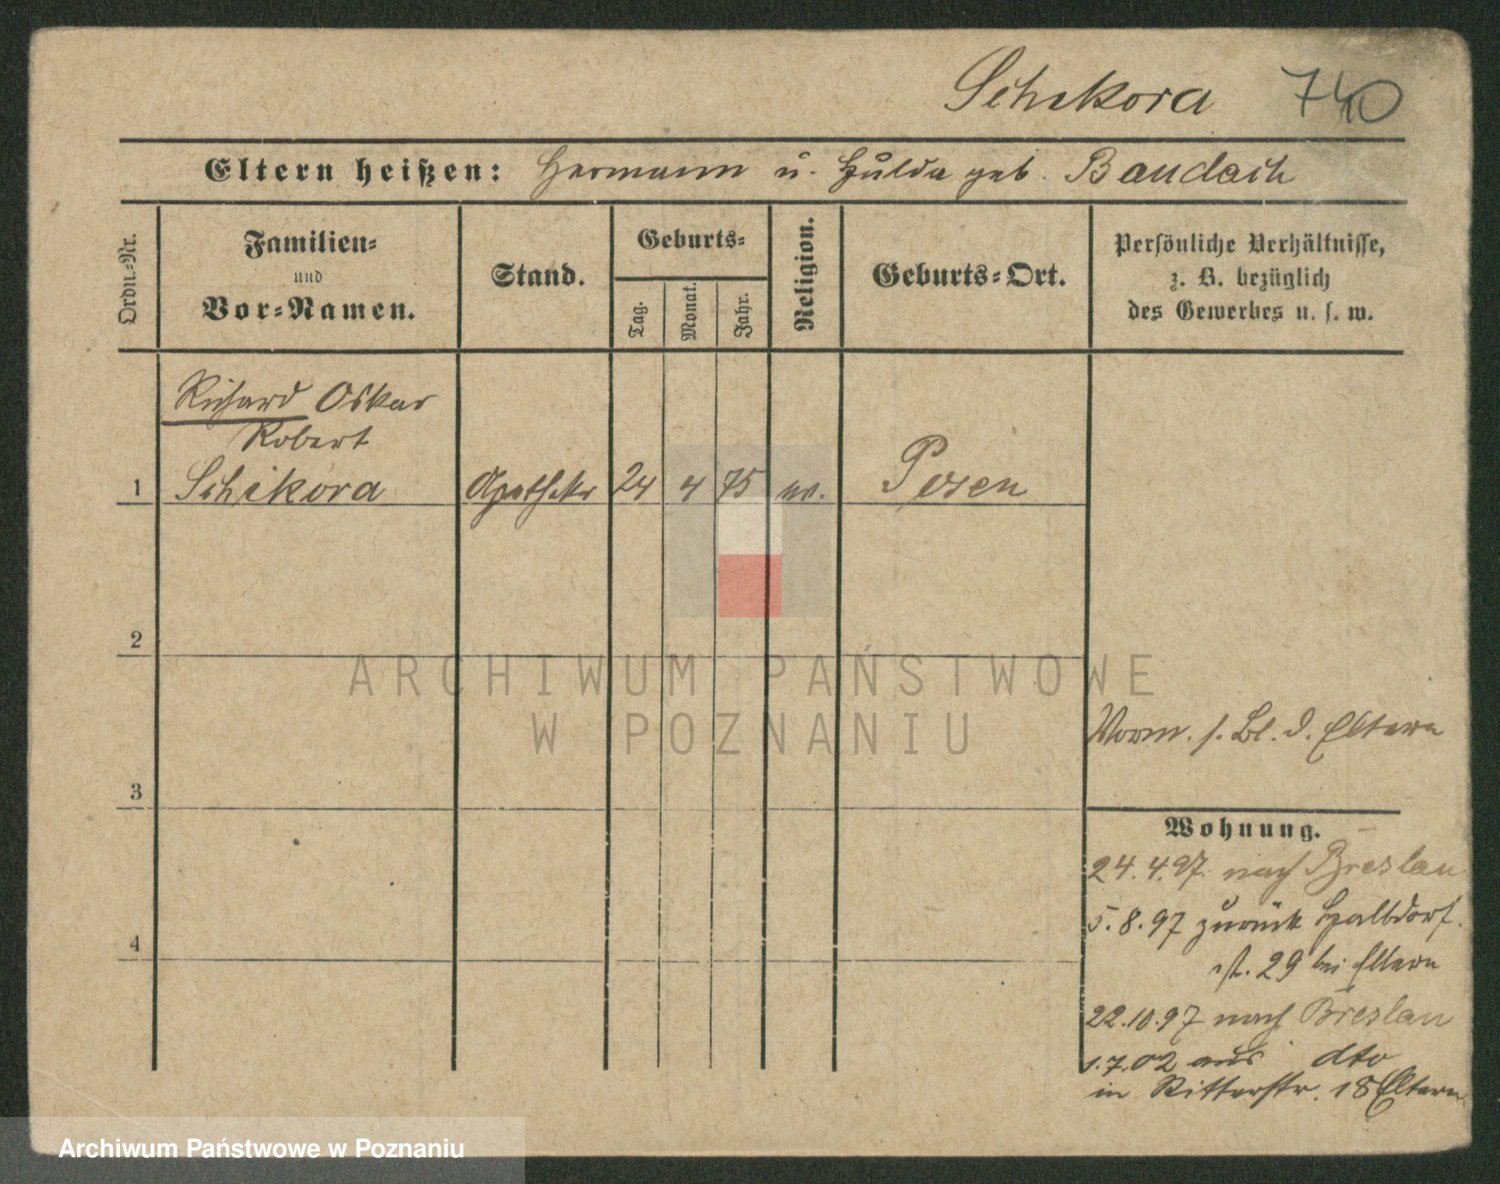 Schikora 740
Eltern heißen: Hermann u. Hulda geb. Baudach
Ordn.-Nr.
Familien-
und
Vor-Namen.
Stand.
Geburts-
Tag.
Monat.
Jahr.
Religion.
Geburts-Ort.
Persönliche Verhältnisse,
z. B. bezüglich
des Gewerbes u. s. w.
Richard Oskar
Robert
1 Schikora Apotheker 24 4 75 ev. Posen
2
3
4
ARCHIWUM PAŃSTWOWE
W POZNANIU
Vorm. s. Bl. d. Eltern
Wohnung.
24.4.97. nach Breslau
5.8.97 zurück Halbdorf-
str. 29 bei Eltern
22.10.97 nach Breslau
1.7.02 aus dto
in Ritterstr. 18 Eltern
Archiwum Państwowe w Poznaniu